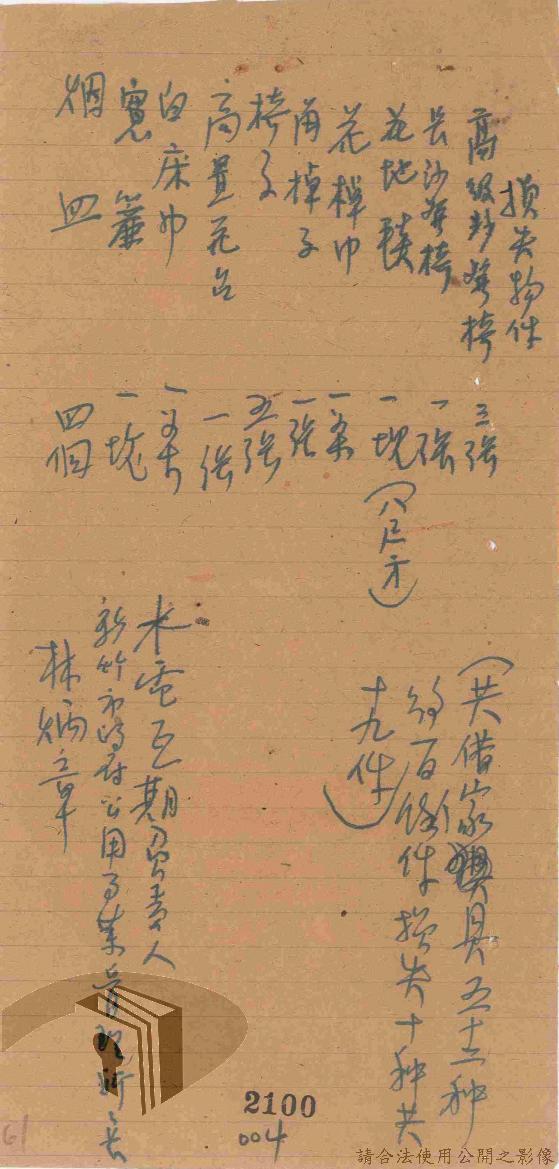 損失物件
高級沙發椅 三張
長沙發椅 一張
花地毯 一塊（八尺方）
花棹巾 一条
角棹子 一張
椅子 五張
高置花台 一張
白床巾 一丈六
窓簾 一塊
烟皿 四個
（共借家俱 具五十二種
約百餘件損失十种共
十九件）
水電工期負責人
新竹市政府公用事業管理所所長
林炳章
2100
004
61
請合法使用公開之影像